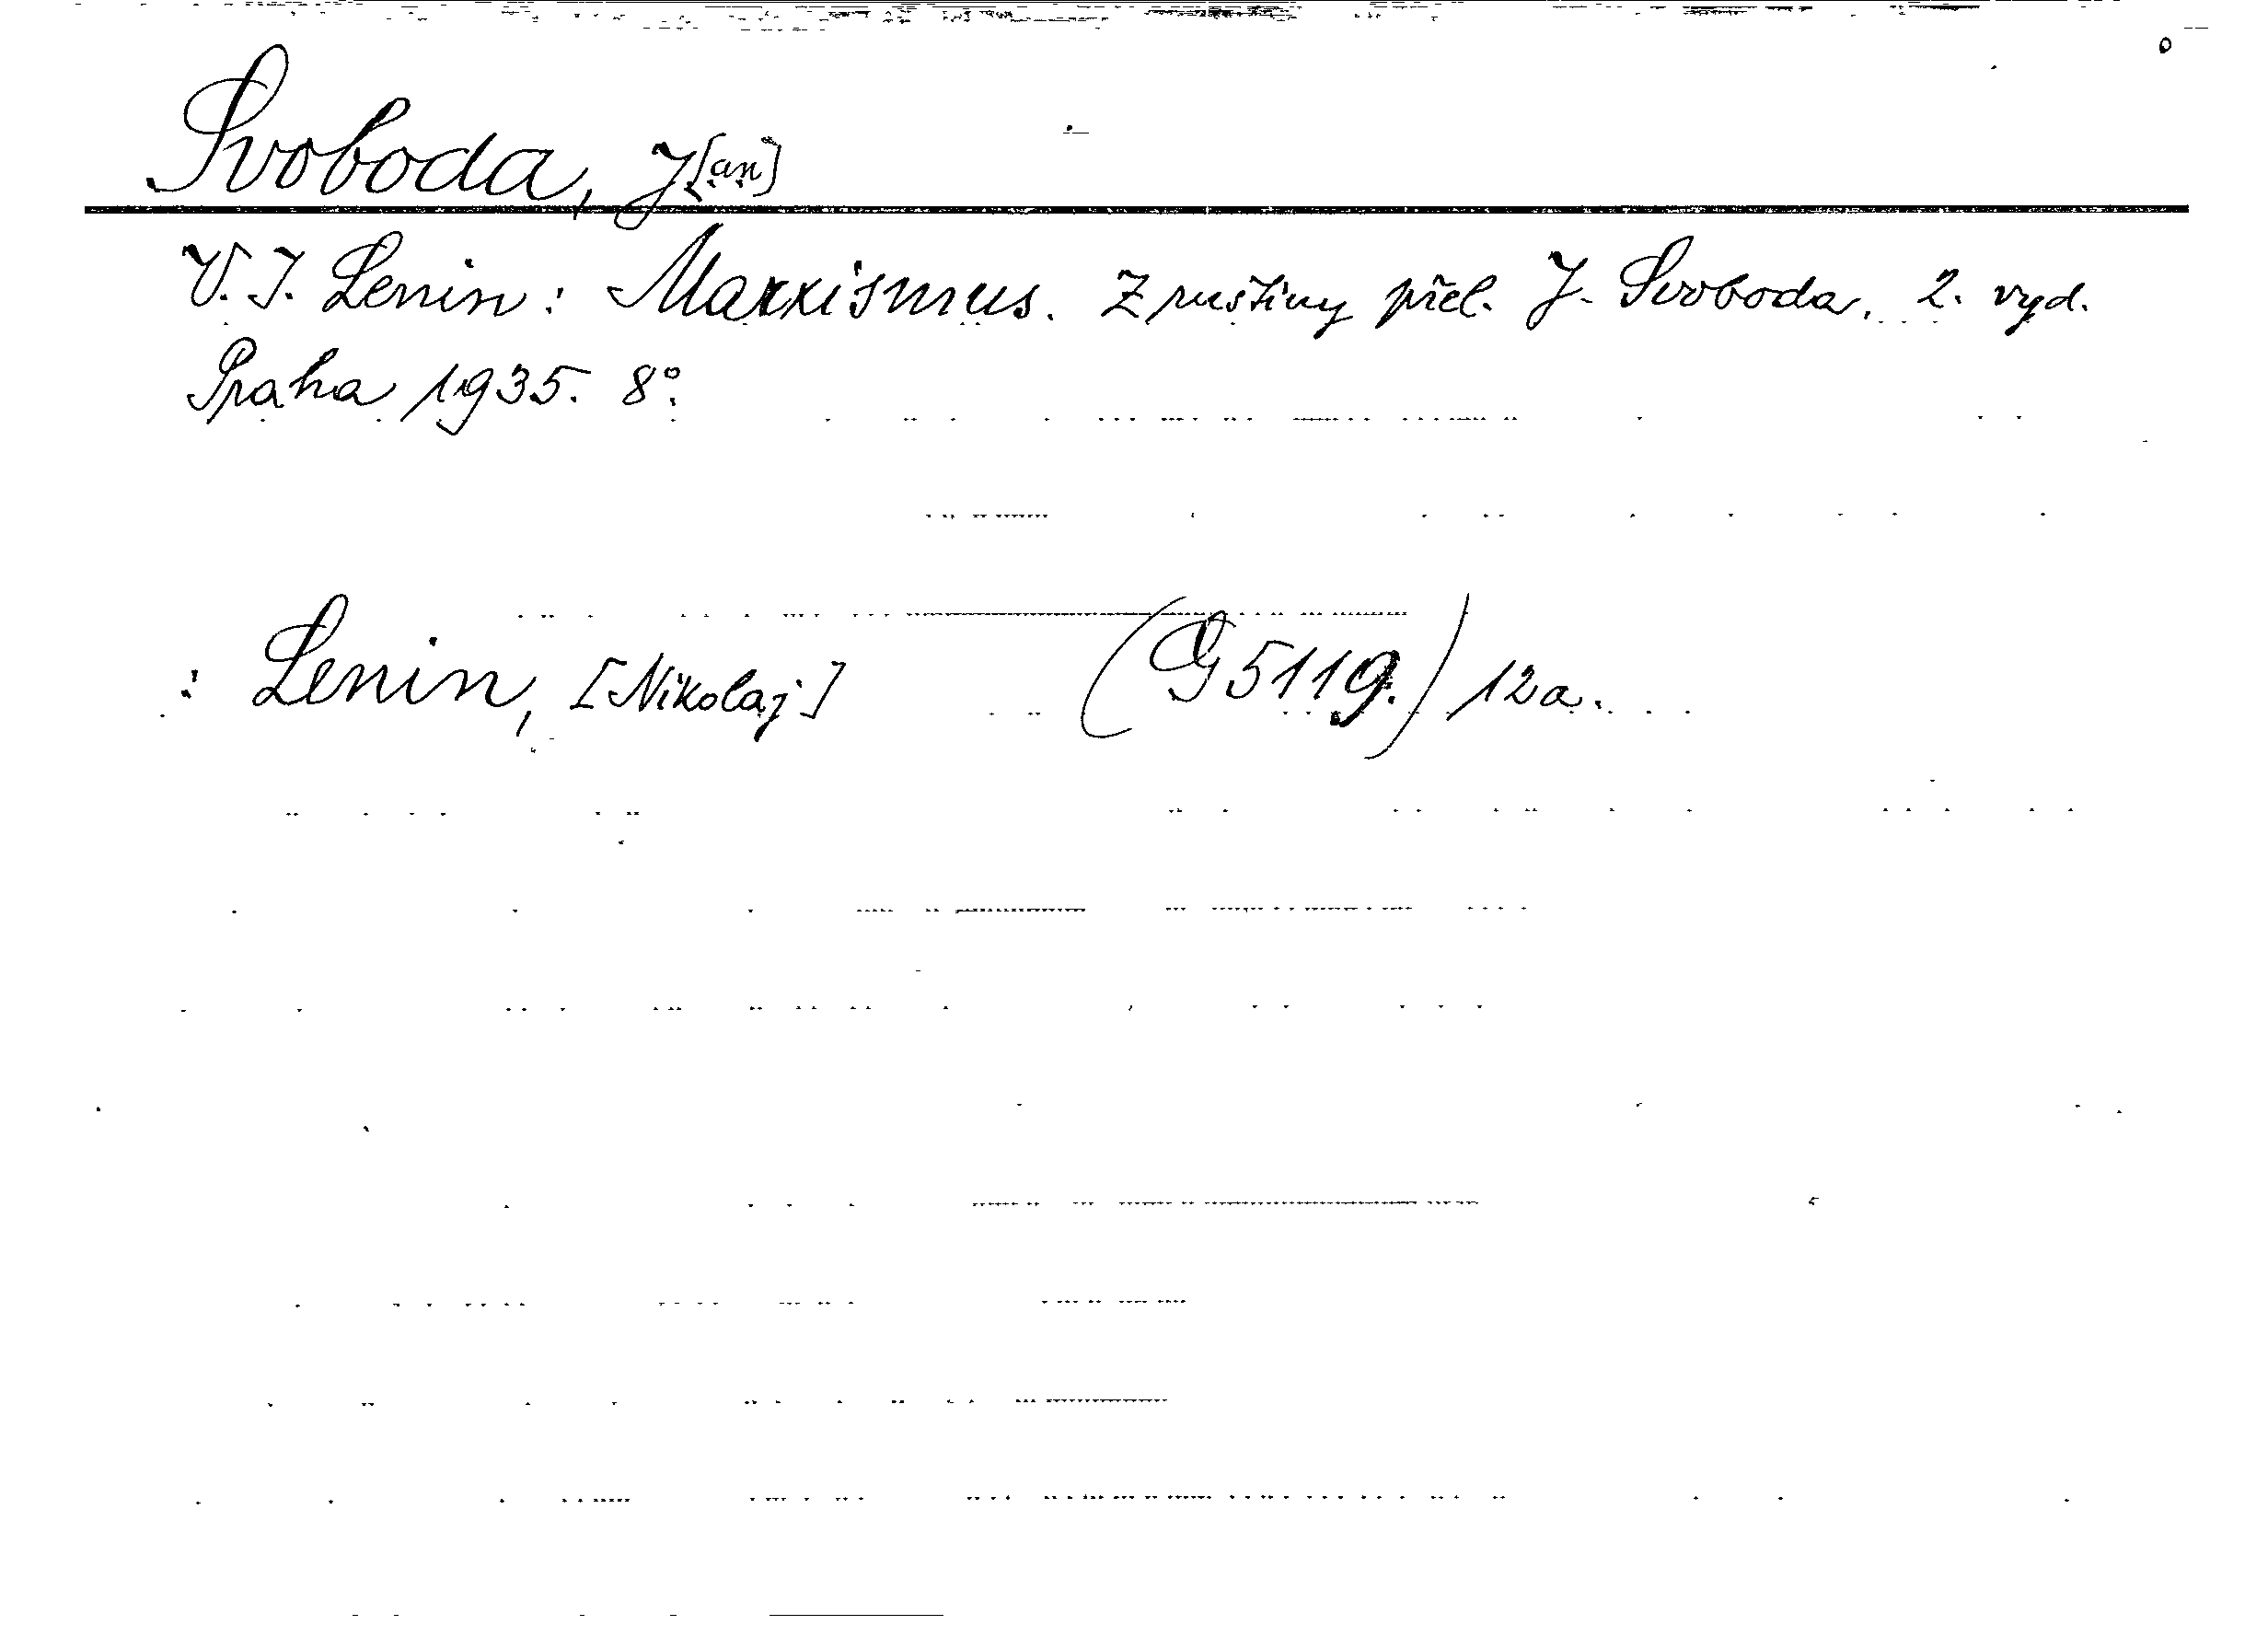 Svoboda, J[an]
V. I. Lenin: Marxismus. Z ruštiny přel. J. Svoboda. 2. vyd.
Praha 1935. 8°.
: Lenin, [Nikolaj] (G 5119.) 12a.